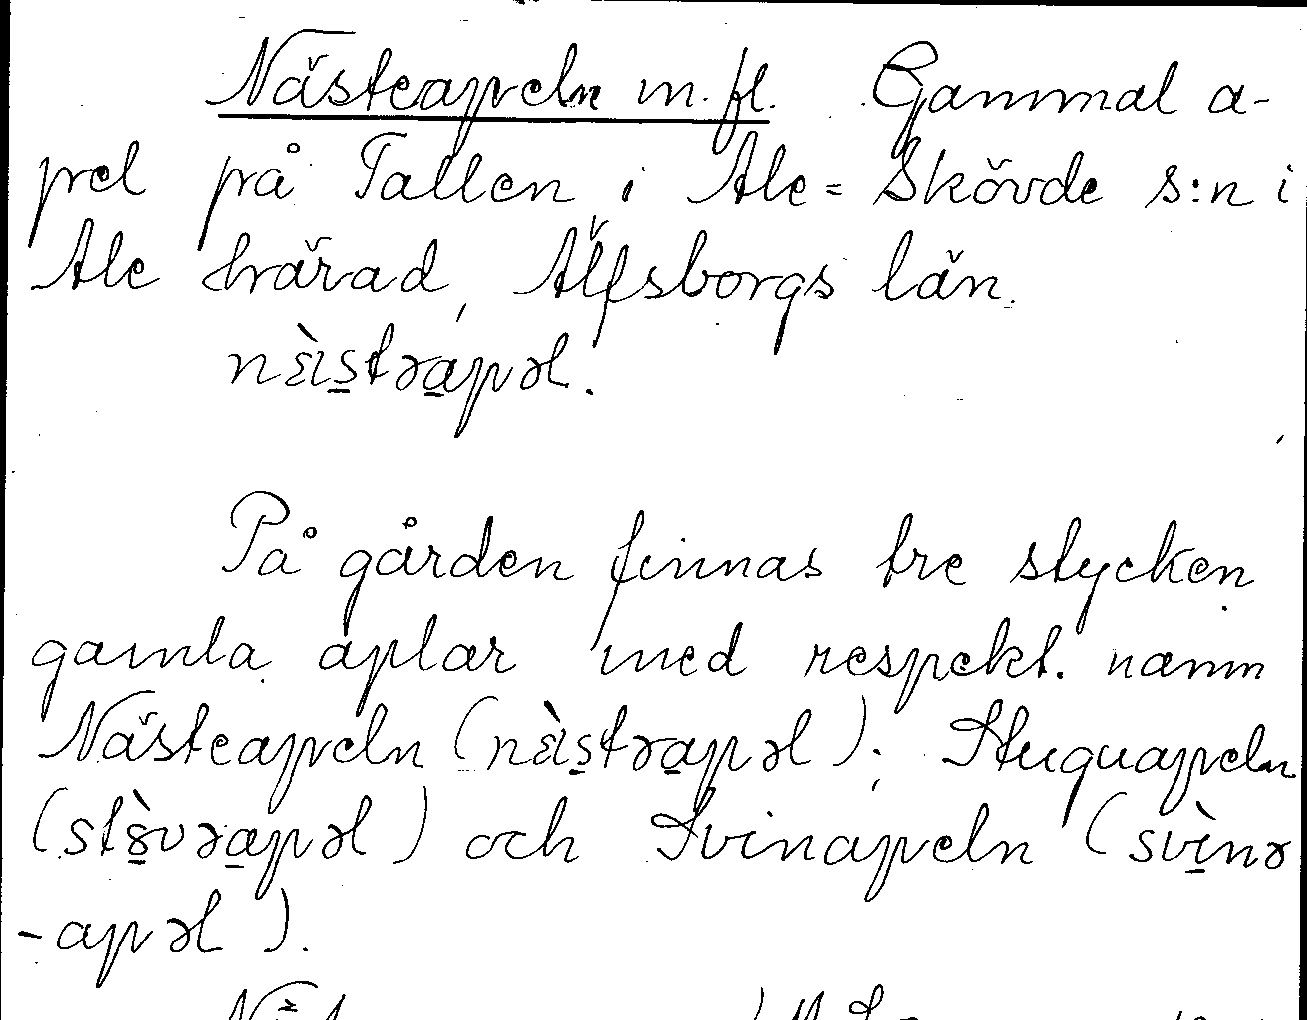 Nästeapeln m. fl. Gammal a-
pel på Tallen i Ale-Skövde s:n i
Ale härad, Älfsborgs län.
nὲıs̲təa̲pəl.
På gården finnas tre stycken
gamla aplar med respekt. namn
Nästeapeln (nὲıs̲təa̲pəl); Stuguapeln
och Svinapeln (svì̲nə
-apəl).